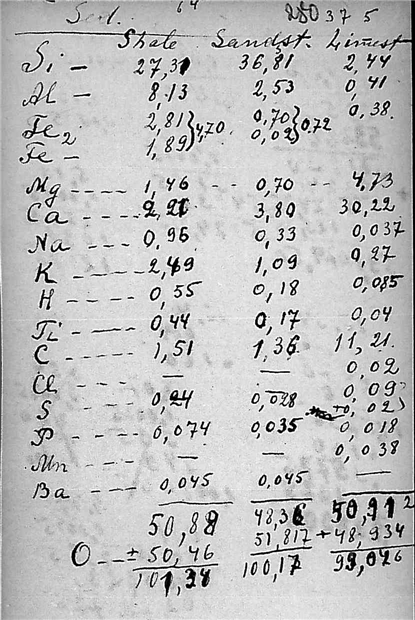 Sed. 64 280 37 5
Shale Sandst. Limest
Si - 27,31 36,81 2,44
Al - 8,13 2,53 0,41
Fe2 2,81 } 4,70 0,70 } 0,72 0,38
Fe - 1,89 0,02
Mg ---- 1,46 -- 0,70 -- 4,73
Ca ---- 2,21 3,80 30,22
Na ---- 0,96 0,33 0,037
K ---- 2,49 1,09 0,27
H ---- 0,55 0,18 0,085
Ti ---- 0,44 0,17 0,04
C ---- 1,51 1,36 11,21
Cl ---- — — 0,02
S ---- 0,24 0,028 0,09
P ---- 0,074 0,035 0,018
Mn ---- — — 0,038
Ba ---- 0,045 0,045 —
50,88 48,36 50,912
O -- ± 50,46 51,817 + 48,934
101,38 100,17